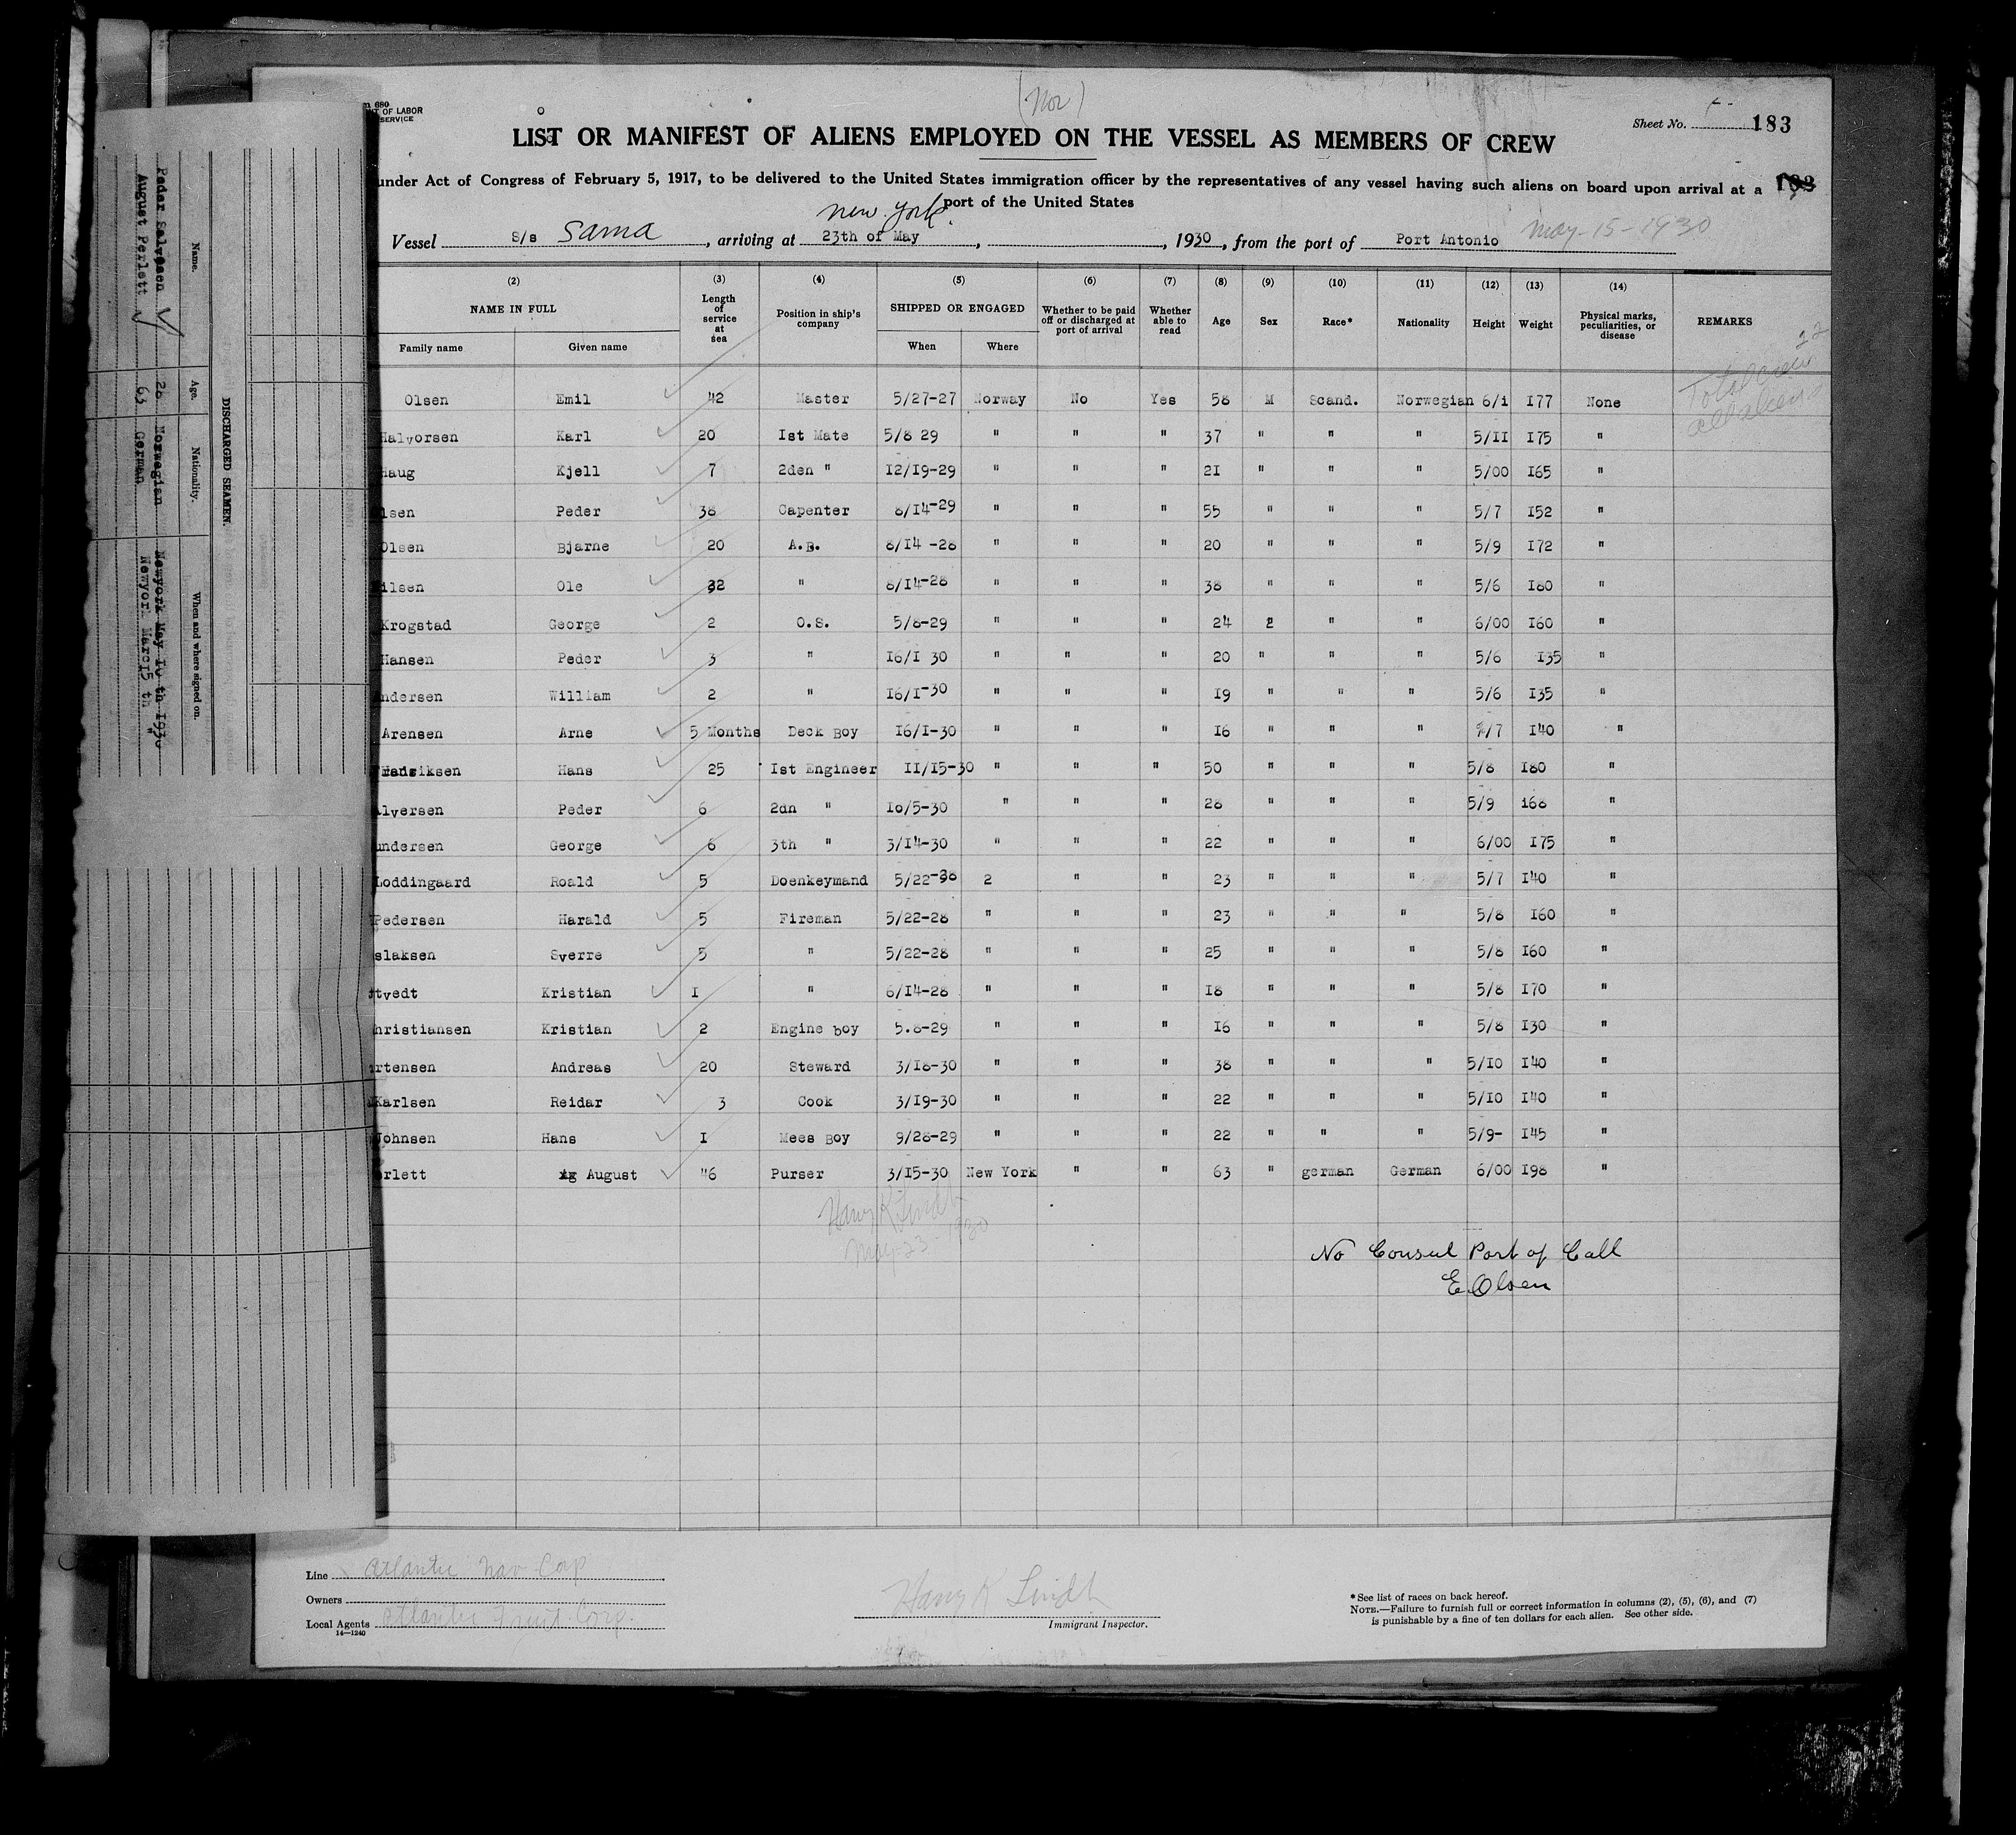 (Nor)
680
OF LABOR
SERVICE
Sheet No. 183
LIST OR MANIFEST OF ALIENS EMPLOYED ON THE VESSEL AS MEMBERS OF CREW
under Act of Congress of February 5, 1917, to be delivered to the United States immigration officer by the representatives of any vessel having such aliens on board upon arrival at a
port of the United States
New York
Vessel S/s Sama, arriving at 23th of May, 1930, from the port of Port Antonio May-15-1930
(2) (3) (4) (5) (6) (7) (8) (9) (10) (11) (12) (13) (14)
NAME IN FULL Length of service at sea Position in ship's company SHIPPED OR ENGAGED Whether to be paid off or discharged at port of arrival Whether able to read Age Sex Race* Nationality Height Weight Physical marks, peculiarities, or disease REMARKS
Family name Given name When Where
22
Total crew
all aliens
Olsen Emil 42 Master 5/27-27 Norway No Yes 58 M Scand. Norwegian 6/1 177 None
Halvorsen Karl 20 Ist Mate 5/8 29 " " " 37 " " " 5/II I75 "
Haug Kjell 7 2den " I2/I9-29 " " " 2I " " " 5/00 I65 "
lsen Peder 38 Capenter 8/I4-29 " " " 55 " " " 5/7 I52 "
Olsen Bjarne 20 A.B. 8/I4-28 " " " 20 " " " 5/9 I72 "
ilsen Ole 32 " 8/I4-28 " " " 38 " " " 5/6 I80 "
Krogstad George 2 O.S. 5/8-29 " " " 24 2 " " 6/00 I60 "
Hansen Peder 3 " I6/I 30 " " " 20 " " " 5/6 I35 "
ndersen William 2 " I6/I-30 " " " I9 " " " 5/6 I35 "
Arensen Arne 5 Months Deck Boy I6/I-30 " " " I6 " " " /7 I40 "
riksen Hans 25 Ist Engineer II/I5-30 " " " 50 " " " 5/8 I80 "
lversen Peder 6 2dn " Io/5-30 " " " 28 " " " 5/9 I68 "
undersen George 6 3th " 3/I4-30 " " " 22 " " " 6/00 I75 "
Loddingaard Roald 5 Doenkeymand 5/22-38 2 " " 23 " " " 5/7 I40 "
Pedersen Harald 5 Fireman 5/22-28 " " " 23 " " " 5/8 I60 "
slaksen Sverre 5 " 5/22-28 " " " 25 " " " 5/8 I60 "
tvedt Kristian I " 6/I4-28 " " " I8 " " " 5/8 I70 "
hristiansen Kristian 2 Engine boy 5.8-29 " " " I6 " " " 5/8 I30 "
rtensen Andreas 20 Steward 3/I8-30 " " " 38 " " " 5/I0 I40 "
Karlsen Reidar 3 Cook 3/I9-30 " " " 22 " " " 5/I0 I40 "
Johnsen Hans I Mees Boy 9/28-29 " " " 22 " " " 5/9- I45 "
rlett August 46 Purser 3/I5-30 New York " " 63 " german German 6/00 I98 "
Harry K Lindt
May-23-1930
No Consul Port of Call
E Olsen
Line Atlantic Nav Corp
Owners
Local Agents Atlantic Fruit Corp.
14—1240
Harry K Lindt
Immigrant Inspector.
*See list of races on back hereof.
NOTE.—Failure to furnish full or correct information in columns (2), (5), (6), and (7)
is punishable by a fine of ten dollars for each alien. See other side.
DISCHARGED SEAMEN.
Name. Age. Nationality. When and where signed on.
Peder Salvesen 28 Norwegian Newyork May I0 th I930
August Perlett 63 German Newyork Marc I5 th "